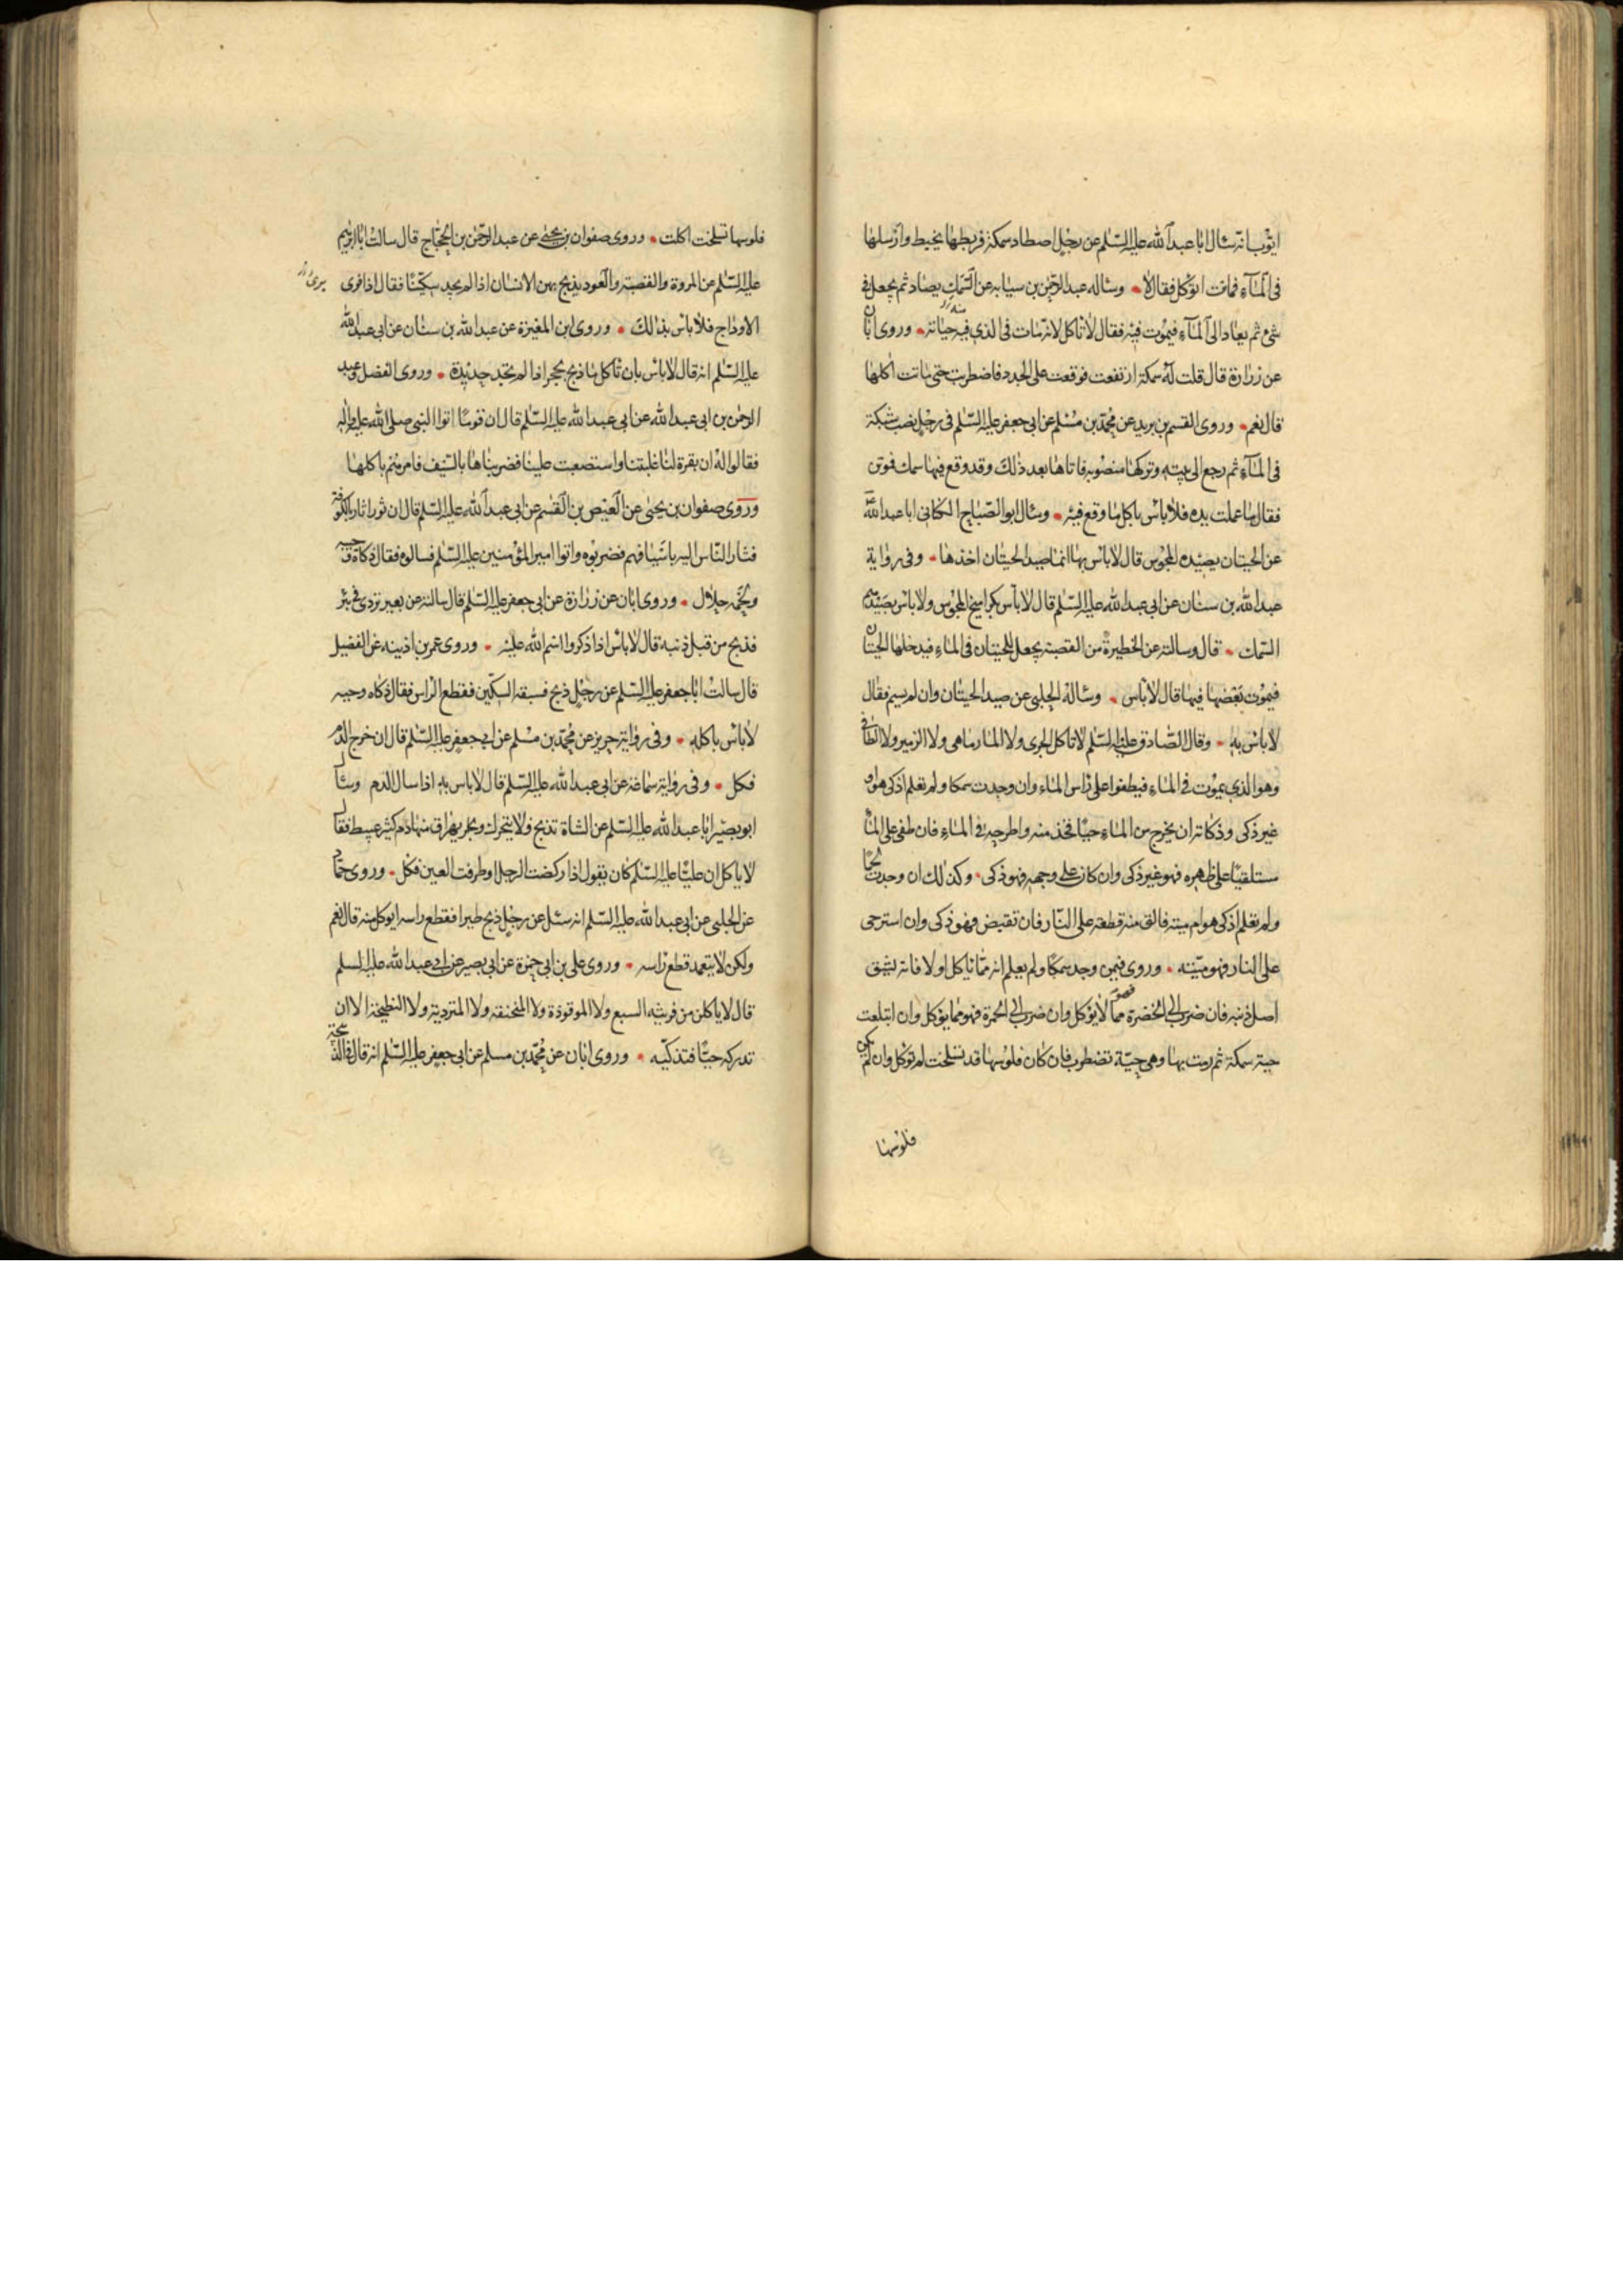 ايوب انه سئال ابا عبد الله عليه السّلم عن رجل اصطاد سمكة فربطها بخيط وارسلها
فى المآء فماتت اتؤكل فقال لا وساله عبد الرّحمن بن سيابه عن السّمك يصاد ثم يجعل فى
شئ ثم يعاد الى المآء فيموت فيه فقال لا تاكل لانه مات فى الذى فيه حياته وروى ابان
عن زرارة قال قلت له سمكة ارتفعت فوقعت على الجدد فاضطربت حتى ماتت اكلها
قال نعم وروى القسم بن بريد عن محمّد بن مسلم عن ابى جعفر عليه السّلم فى رجل نصب شبكة
فى المآء ثم رجع الى بيته وتركها منصوبه فاتاها بعد ذلك وقد وقع فيها سمك فموتن
فقال ما عملت يده فلا باس باكل ما وقع فيه وسئال ابو الصّباح الكنانى ابا عبد الله
عن الحيتان يصيده المجوس قال لا باس بها انما صيد الحيتان اخذها وفى رواية
عبد الله بن سنان عن ابى عبد الله عليه السّلم قال لا باس بكراسيخ المجوس ولا باس بصيدهم
السّمك قال وسالته عن الحظيرة من القصبة يجعل للحيتان فى الماء فيدخلها الحيتان
فيموت بعضها فيها قال لا باس وساله الحلبى عن صيد الحيتان وان لم يسم فقال
لا باس به وقال الصّادق عليه السّلم لا تاكل الجرى ولا المارماهى ولا الزمير ولا الطافى
وهو الذى يموت فى الماء فيطفوا على راس الماء وان وجدت سمكا ولم تعلم اذكى هو او
غير ذكى وذكاته ان يخرج من الماء حيّا فخذ منه واطرحه فى الماء فان طفى على الماء
مستلقيا على ظهره فهو غير ذكى وان كان على وجهه فهو ذكى وكذلك ان وجدت لحما
ولم تعلم اذكى هو ام ميته فالق منه قطعة على النّار فان تقبض فهو ذكى وان استرخى
على النار فهو ميّته وروى فيمن وجد سمكا ولم يعلم انه ممّا يؤكل او لا فانه يشق
اصل ذنبه فان ضرب الى الخضرة فهو ممّا لا يؤكل وان ضرب الى الحمرة فهو مما يؤكل وان ابتلعت
حية سمكة ثم رمت بها وهى حيّة تضطرب فان كان فلوسها قد تسلخت لم تؤكل وان لم يكن
فلوسها
فلوسها تسلخت اكلت وروى صفوان بن يحيى عن عبد الرّحمن بن الحجّاج قال سالت ابا ابرهيم
عليه السّلم عن المروة والقصبة والعود يذبح بهن الانسان اذا لم يجد سكّينا فقال اذا فرى
الاوداج فلا باس بذلك وروى ابن المغيرة عن عبد الله بن سنان عن ابى عبد الله
عليه السّلم انه قال لا باس بان تاكل ما ذبح بحجر اذا لم تجد حديدة وروى الفضل وعبد
الرحمن بن ابى عبد الله عن ابى عبد الله عليه السّلم قال ان قوما اتوا النبى صلى الله عليه واله
فقالوا له ان بقرة لنا غلبتنا واستصعبت علينا فضربناها بالسّيف فامرهم باكلها
وروى صفوان بن يحيى عن العيص بن القسم عن ابى عبد الله عليه السّلم قال ان ثورا ثار بالكوفة
فثار النّاس اليه باسيافهم فضربوه واتوا امير المؤمنين عليه السّلم فسالوه فقال ذكاة وحيه
ولحمه حلال وروى ابان عن زرارة عن ابى جعفر عليه السّلم قال سالته عن بعير تردى فى بئر
فذبح من قبل ذنبه قال لا باس اذا ذكروا اسم الله عليه وروى عمر بن اذينه عن الفضيل
قال سالت ابا جعفر عليه السّلم عن رجل ذبح فسبقه السكّين فقطع الراس فقال ذكاه وحيه
لا باس باكله وفى رواية حريز عن محمّد بن مسلم عن ابى جعفر عليه السّلم قال ان خرج الدّم
فكل وفى رواية سماعة عن ابى عبد الله عليه السّلم قال لا باس به اذا سال الدم وسئال
ابو بصير ابا عبد الله عليه السّلم عن الشاة تذبح ولا يتحرك ويهراق منها دم كثير عبيط فقال
لا ياكل ان عليّا عليه السّلم كان يقول اذا ركضت الرجل او طرفت العين فكل وروى حمّاد
عن الحلبى عن ابى عبد الله عليه السّلم انه سئل عن رجل ذبح طيرا فقطع راسه ايوكل منه قال نعم
ولكن لا يتعمد قطع راسه وروى على بن ابى حمزة عن ابى بصير عن ابى عبد الله عليه السلم
قال لا ياكلن من فريسه السبع ولا الموقوذة ولا المنخنقة ولا المتردية ولا النطيحة الا ان
تدركه حيّا فتذكيه وروى ابان عن محمّد بن مسلم عن ابى جعفر عليه السّلم انه قال فى الذبيحة